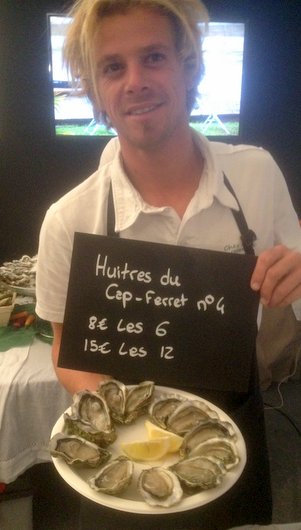 Huitres du
Cap-Ferret n°4
8€ Les 6
15€ Les 12